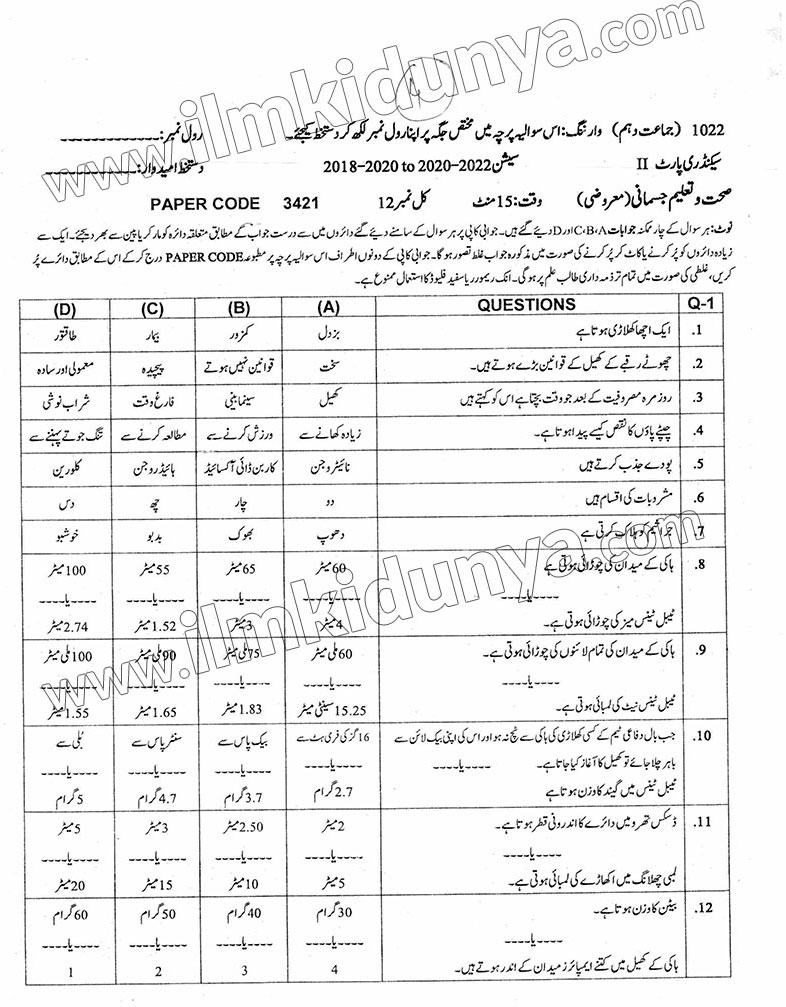 www.ilmkidunya.com
1022 (جماعت دہم) وارننگ: اس سوالیہ پرچہ میں مختص جگہ پر اپنا رول نمبر لکھ کر دستخط کیجئے۔ رول نمبر:
سیکنڈری پارٹ II سیشن 2018-2020 to 2020-2022 دستخط امیدوار:
صحت و تعلیم جسمانی (معروضی) وقت: 15 منٹ کل نمبر 12 PAPER CODE 3421
نوٹ: ہر سوال کے چار ممکنہ جوابات A،B،C اور D دیئے گئے ہیں۔ جوابی کاپی پر ہر سوال کے سامنے دیئے گئے دائروں میں سے درست جواب کے مطابق متعلقہ دائرہ کو مارکر یا پین سے بھر دیجئے۔ ایک سے
زیادہ دائروں کو پُر کرنے یا کاٹ کر پُر کرنے کی صورت میں مذکورہ جواب غلط تصور ہوگا۔ جوابی کاپی کے دونوں اطراف اس سوالیہ پرچہ پر مطبوعہ PAPER CODE درج کر کے اس کے مطابق دائرے پُر
کریں، غلطی کی صورت میں تمام تر ذمہ داری طالب علم پر ہوگی۔ انک ریمور یا سفید فلیوڈ کا استعمال ممنوع ہے۔
Q-1 QUESTIONS (A) (B) (C) (D)
1. ایک اچھا کھلاڑی ہوتا ہے بزدل کمزور بیمار طاقتور
2. چھوٹے رقبے کے کھیل کے قوانین بڑے ہوتے ہیں۔ سخت قوانین نہیں ہوتے پیچیدہ معمولی اور سادہ
3. روزمرہ مصروفیت کے بعد جو وقت بچتا ہے اس کو کہتے ہیں کھیل سینما بینی فارغ وقت شراب نوشی
4. چپٹے پاؤں کا نقص کیسے پیدا ہوتا ہے۔ زیادہ کھانے سے ورزش کرنے سے مطالعہ کرنے سے تنگ جوتے پہننے سے
5. پودے جذب کرتے ہیں نائیٹروجن کاربن ڈائی آکسائیڈ ہائیڈروجن کلورین
6. مشروبات کی اقسام ہیں دو چار چھ دس
7. جراثیم کو ہلاک کرتی ہے دھوپ بھوک بدبو خوشبو
8. ہاکی کے میدان کی چوڑائی ہوتی ہے 60 میٹر 65 میٹر 55 میٹر 100 میٹر
----یا---- ----یا---- ----یا---- ----یا---- ----یا----
ٹیبل ٹینس میز کی چوڑائی ہوتی ہے۔ 4 میٹر 3 میٹر 1.52 میٹر 2.74 میٹر
9. ہاکی کے میدان کی تمام لائنوں کی چوڑائی ہوتی ہے۔ 60 ملی میٹر 75 ملی میٹر 90 ملی میٹر 100 ملی میٹر
----یا---- ----یا---- ----یا---- ----یا---- ----یا----
ٹیبل ٹینس نیٹ کی لمبائی ہوتی ہے۔ 15.25 سینٹی میٹر 1.83 میٹر 1.65 میٹر 1.55 میٹر
10. جب بال دفاعی ٹیم کے کسی کھلاڑی کی ہاکی سے ٹچ نہ ہو اور اس کی اپنی بیک لائن سے 16 گز کی فری ہٹ سے بیک پاس سے سنٹر پاس سے بُلی سے
باہر چلا جائے تو کھیل کا آغاز کیا جاتا ہے۔ ----یا---- ----یا---- ----یا---- ----یا---- ----یا----
ٹیبل ٹینس میں گیند کا وزن ہوتا ہے 2.7 گرام 3.7 گرام 4.7 گرام 5 گرام
11. ڈسکس تھرو میں دائرے کا اندرونی قطر ہوتا ہے۔ 2 میٹر 2.50 میٹر 3 میٹر 5 میٹر
----یا---- ----یا---- ----یا---- ----یا---- ----یا----
لمبی چھلانگ میں اکھاڑے کی لمبائی ہوتی ہے۔ 5 میٹر 10 میٹر 15 میٹر 20 میٹر
12. بیٹن کا وزن ہوتا ہے۔ 30 گرام 40 گرام 50 گرام 60 گرام
----یا---- ----یا---- ----یا---- ----یا---- ----یا----
ہاکی کے کھیل میں کتنے ایمپائرز میدان کے اندر ہوتے ہیں۔ 4 3 2 1
www.ilmkidunya.com